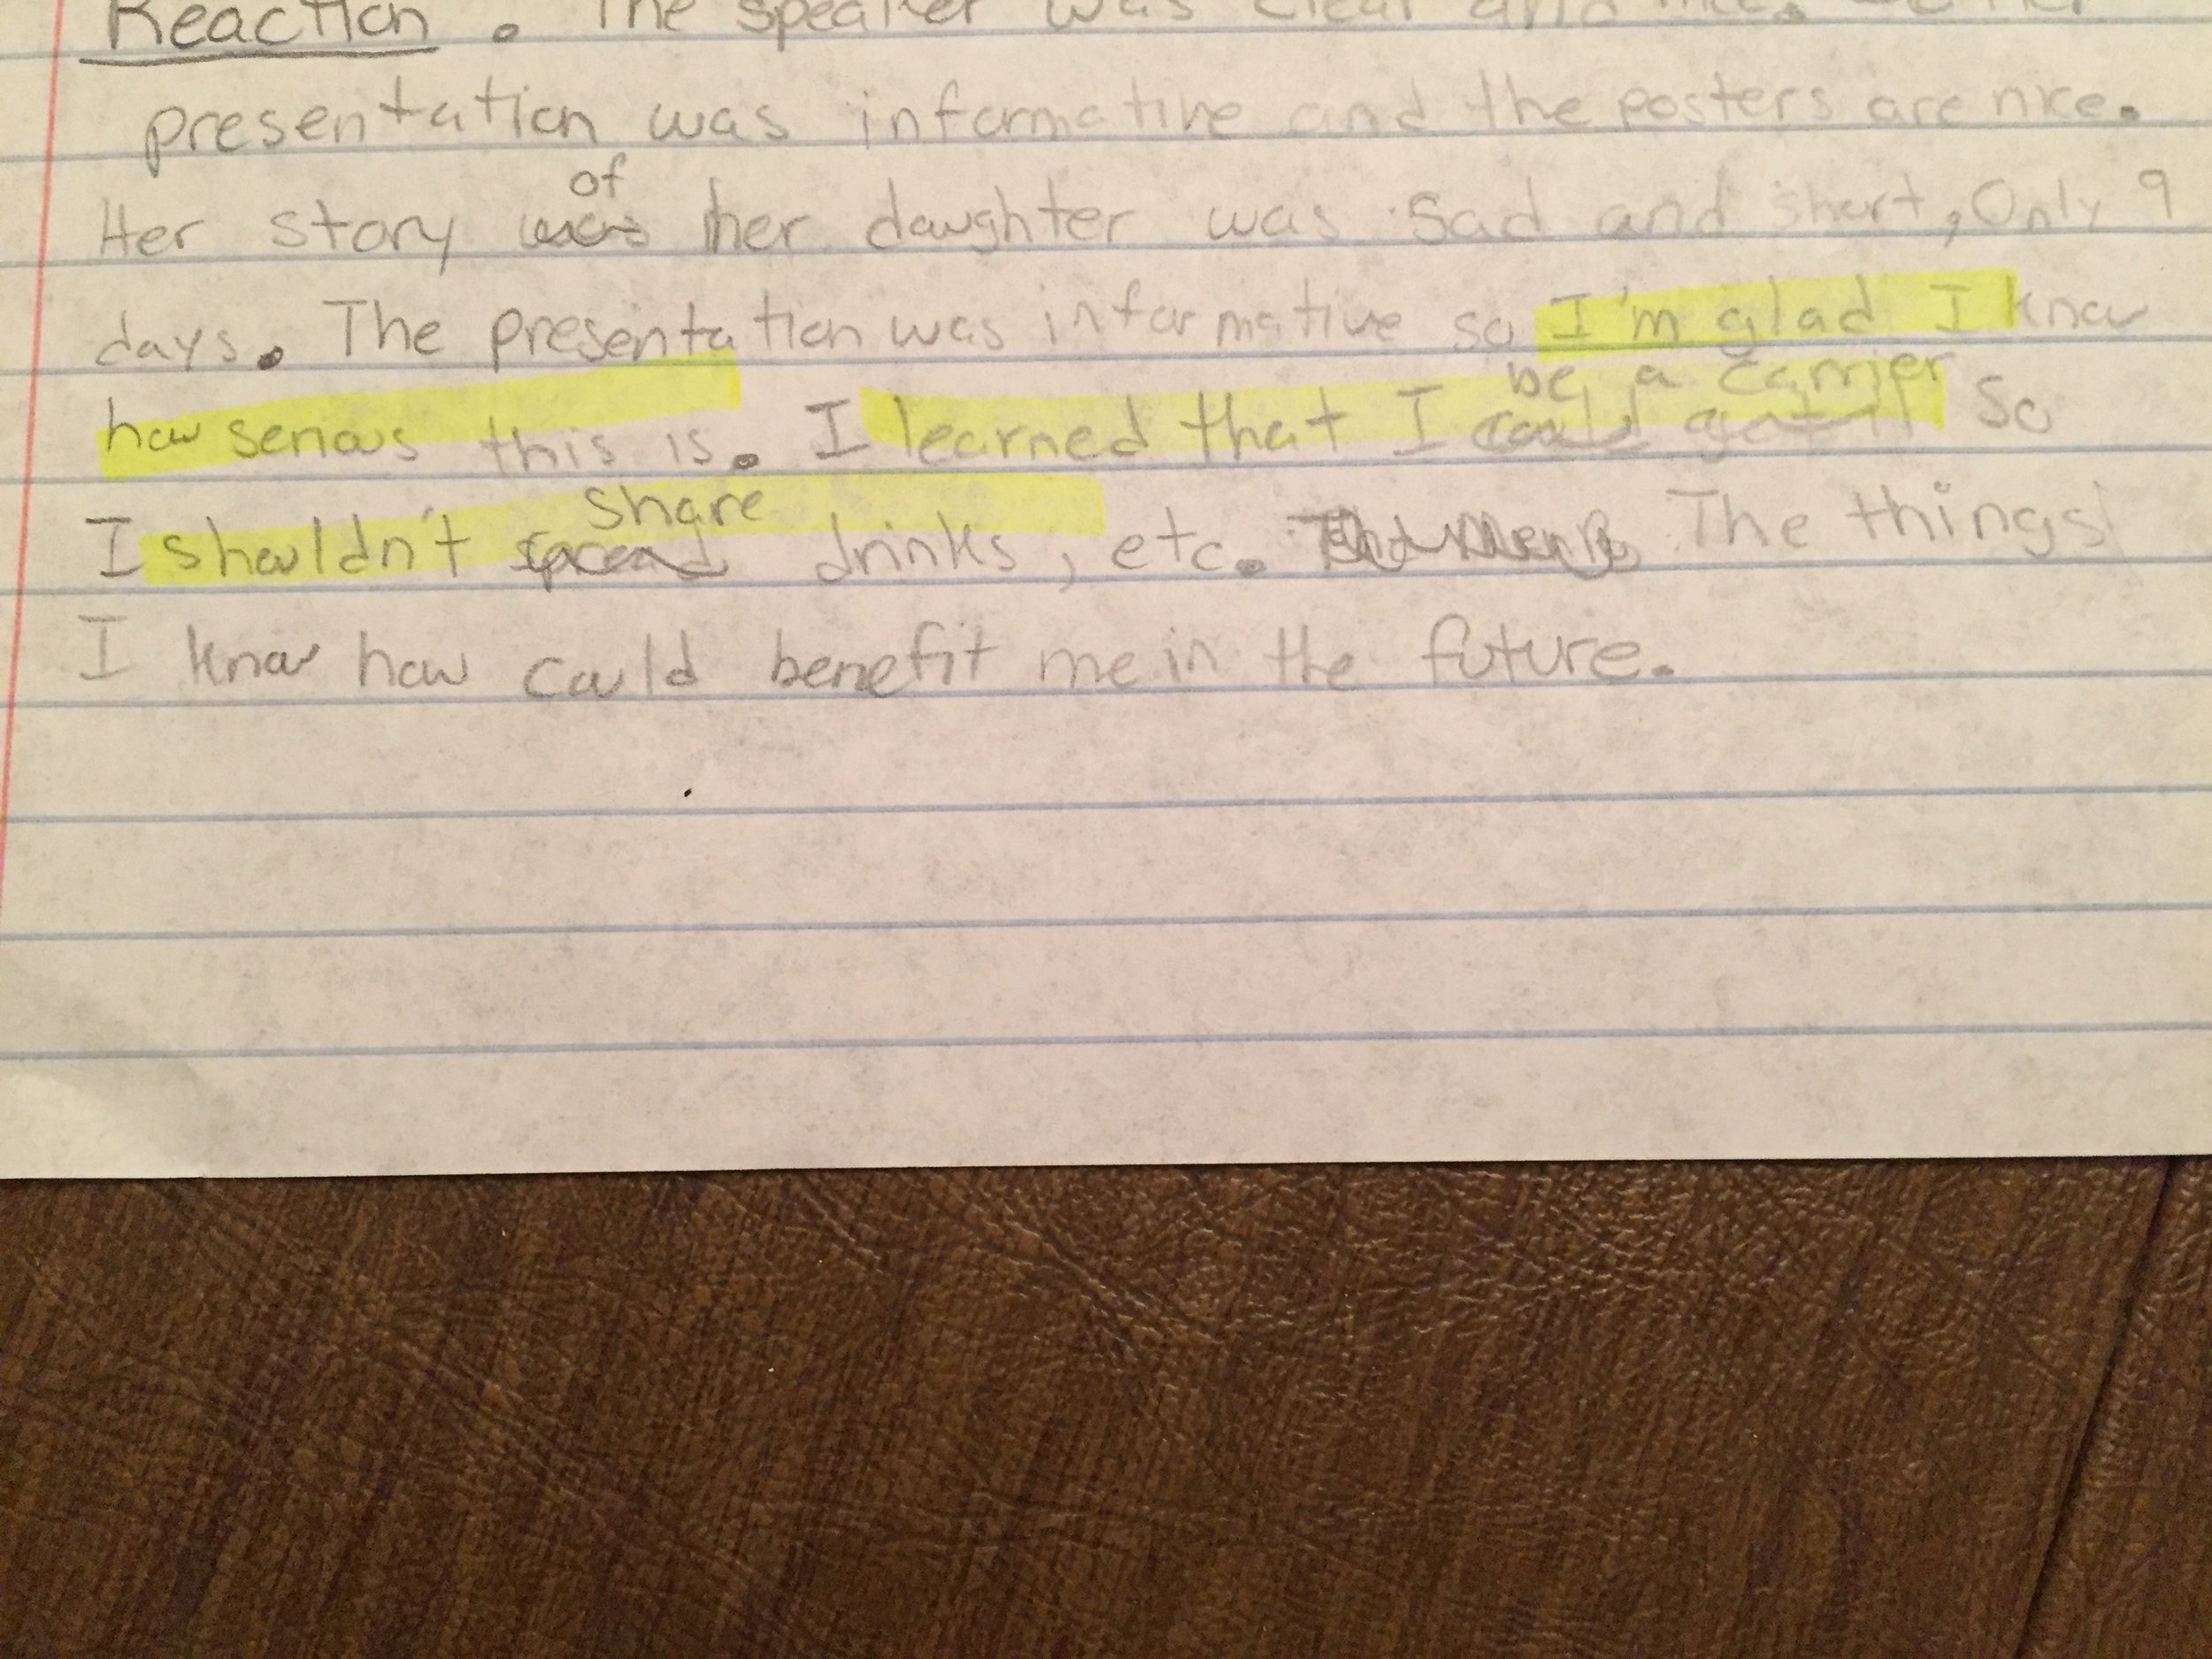 Reaction. The speaker was clear and nice.
presentation was informative and the posters are nice.
Her story was of her daughter was sad and short, Only 9
days. The presentation was informative so I'm glad I know
how serious this is. I learned that I could get it be a carrier So
I shouldn't spread share drinks, etc. The things
I know how could benefit me in the future.